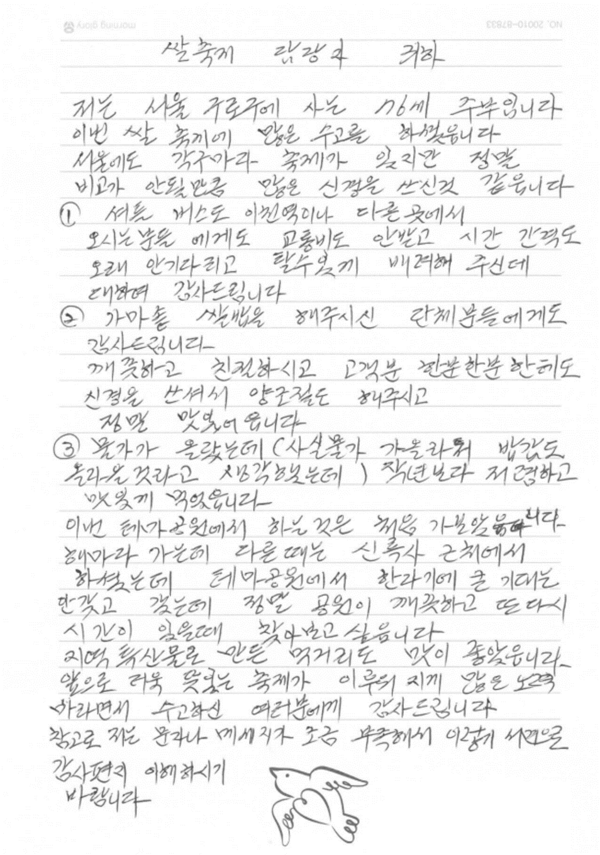 NO. 20010-87833
morning glory
쌀축제 담당자 귀하
저는 서울 구로구에 사는 76세 주부입니다
이번 쌀 축제에 많은 수고를 하셨읍니다
서울에도 각구마다 축제가 있지만 정말
비교가 안될만큼 많은 신경을 쓰신것 같읍니다
① 셔틀 버스도 이천역이나 다른곳에서
오시는분들 에게도 교통비도 안받고 시간 간격도
오래 안기다리고 탈수있게 배려해 주신데
대하여 감사드립니다
② 가마솥 쌀밥을 해주시신 단체분들에게도
감사드립니다
깨끗하고 친절하시고 고객분 한분한분한테도
신경을 쓰셔서 양조절도 해주시고
정말 맛있어읍니다
③ 물가가 올랐는데 (사실물가 가올라워 밥값도
올라올것라고 생각했는데) 작년보다 저렴하고
맛있게 먹었읍니다
이번 테마공원에서 하는것은 처음 가보았읍니다
해마라 가는데 다른때는 신륵사 근처에서
하셨는데 테마공원에서 한라기에 큰 기대는
안갖고 갔는데 정말 공원이 깨끗하고 또다시
시간이 있을때 찾아보고 싶읍니다
지역 특산물로 만든 먹거리도 맛이 좋았읍니다
앞으로 더욱 뜻있는 축제가 이루워지게 많은 노력
바라면서 수고하신 여러분에게 감사드립니다
참고로 저는 문자나 메세지가 조금 부족해서 이렇게 서면으로
감사편지 이해하시기
바랍니다